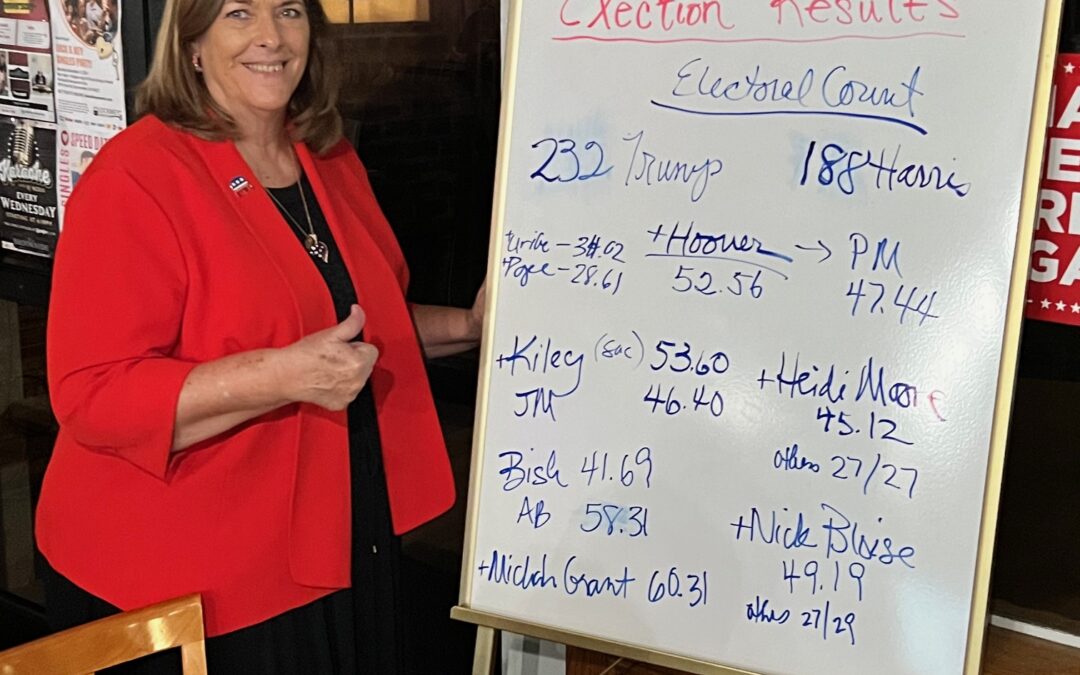 Election Results
Electoral Count
232 Trump
188 Harris
+Uribe - 34.02
+Pogue - 28.61
+Hoover → PM
52.56
47.44
+Kiley (Sac) 53.60
JM 46.40
+Heidi Moore
45.12
others 27/27
Bish 41.69
AB 58.31
+Nick Bloise
49.19
others 27/29
+Michah Grant 60.31
Karaoke
EVERY
WEDNESDAY
SINGLES
SPEED
SINGLES PARTY